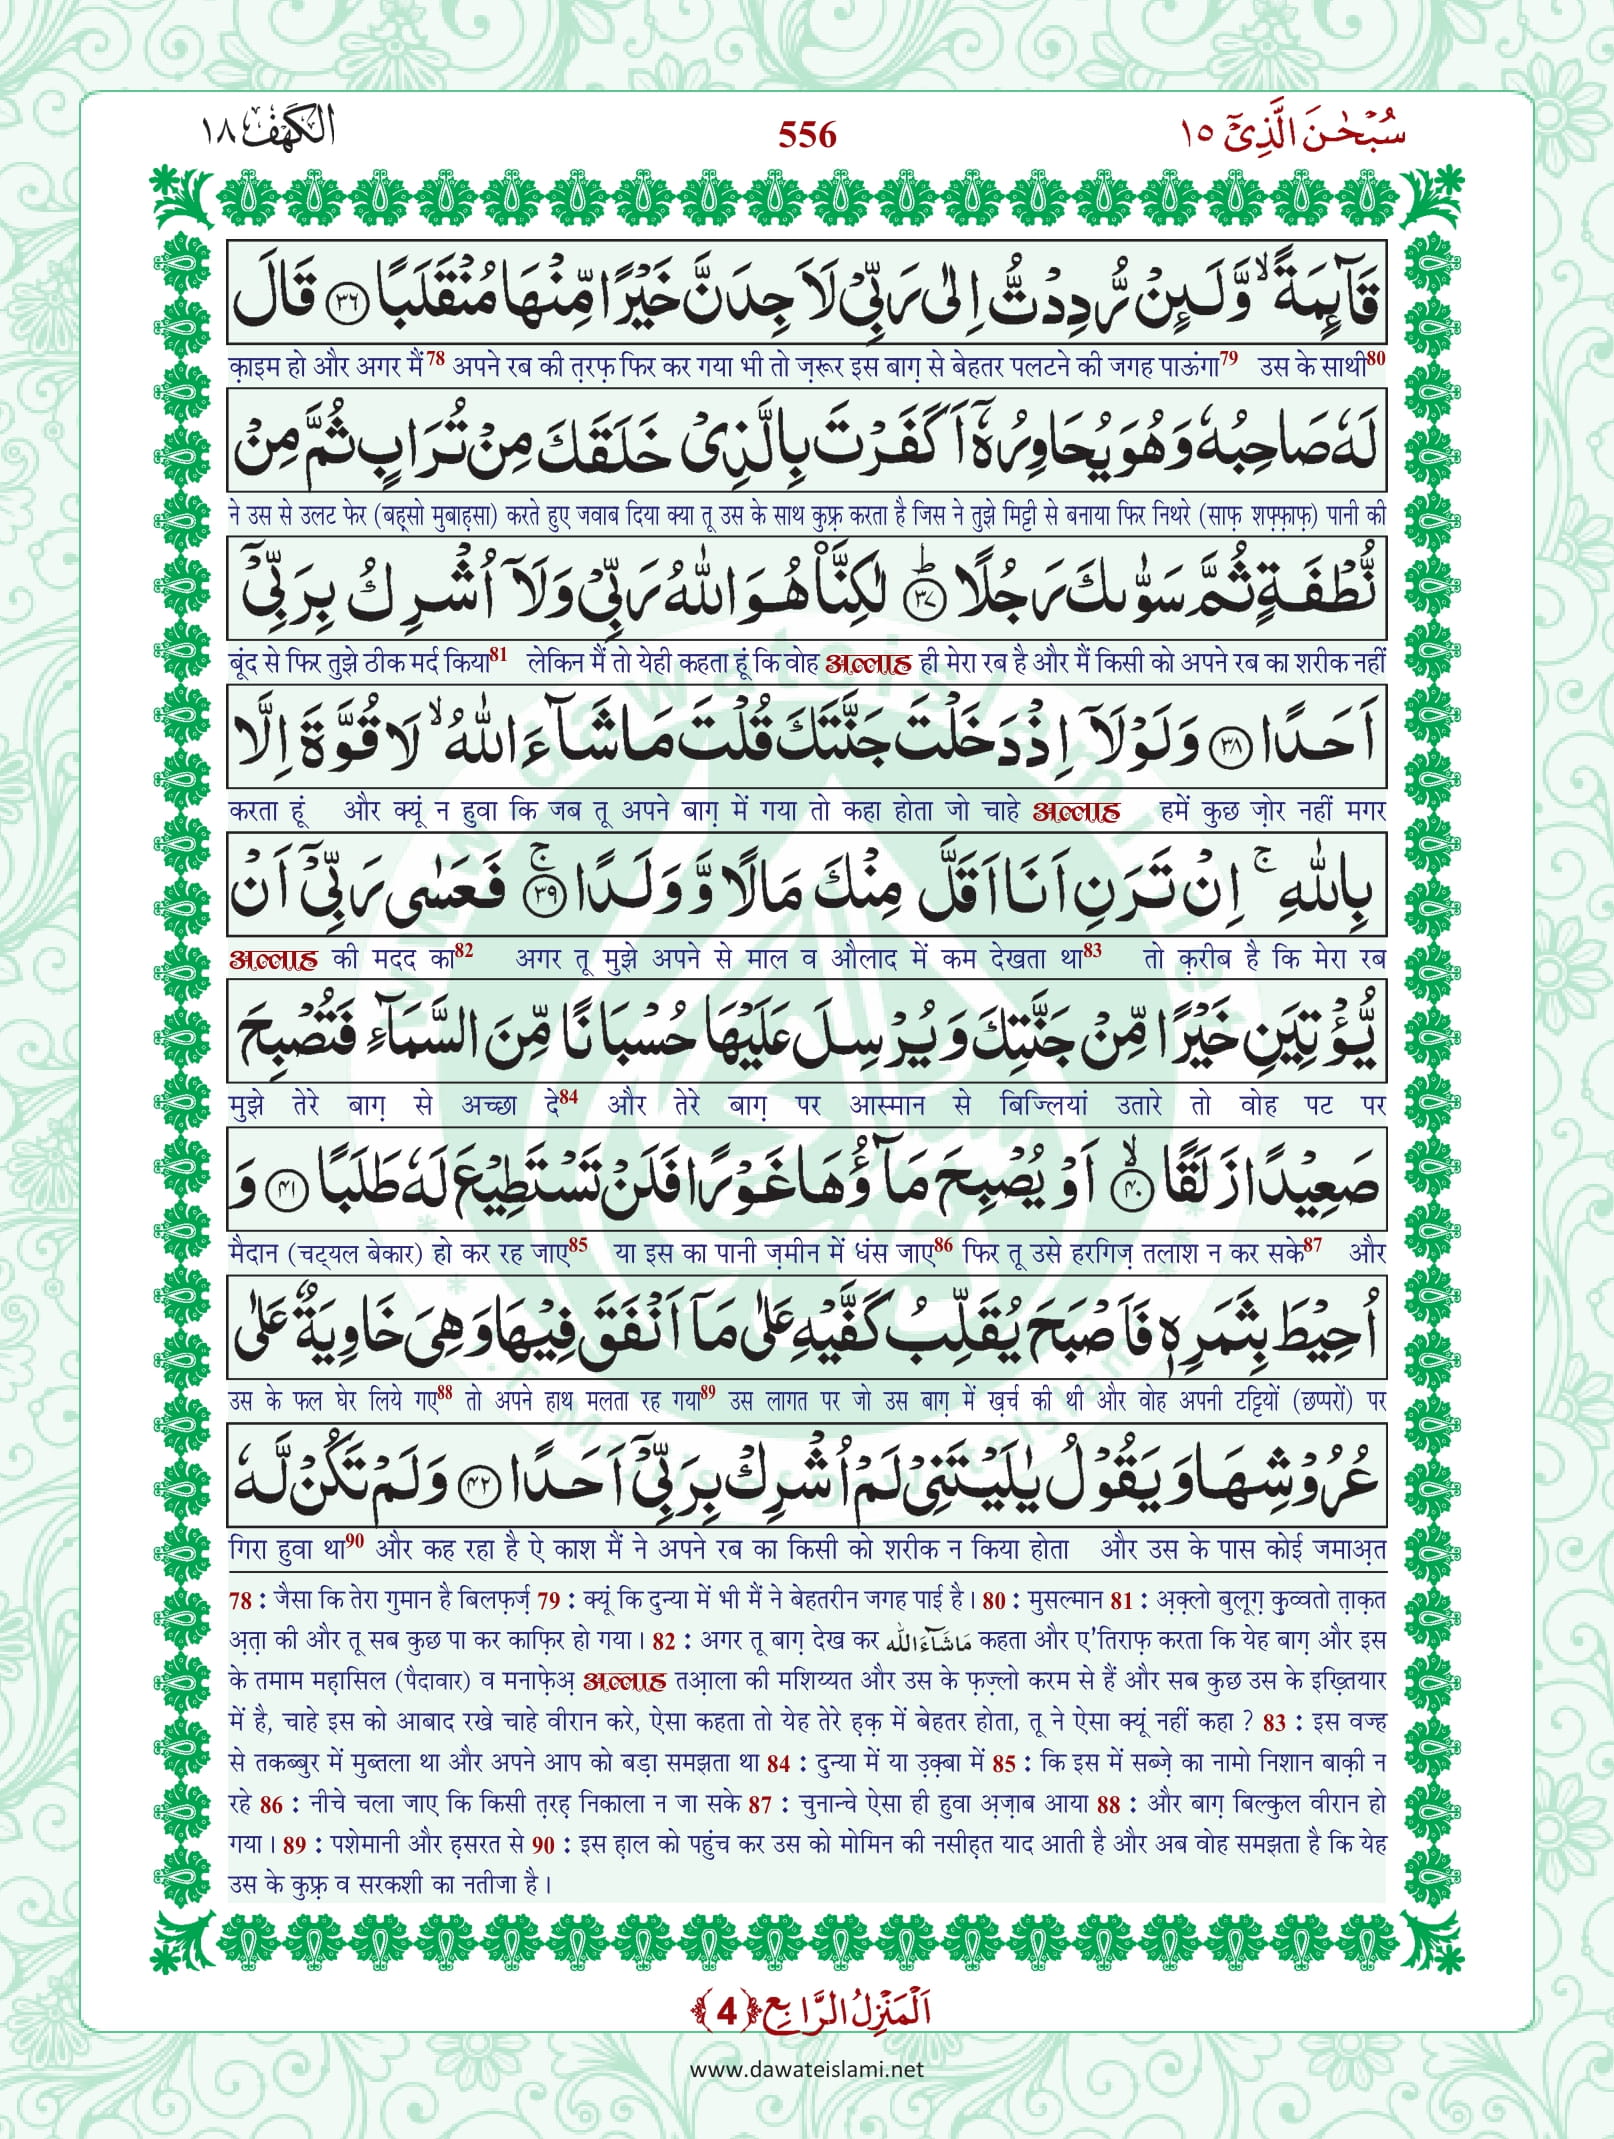 سُبْحٰنَ الَّذِیْۤ ١٥
556
الكهف ١٨
قَآىِٕمَةًۙ وَّ لَىِٕنْ رُّدِدْتُّ اِلٰى رَبِّیْ لَاَجِدَنَّ خَیْرًا مِّنْهَا مُنْقَلَبًا ﴿۳۶﴾ قَالَ
क़ाइम हो और अगर मैं78 अपने रब की त़रफ़ फिर कर गया भी तो ज़रूर इस बाग़ से बेहतर पलटने की जगह पाऊंगा79 उस के साथी80
لَهٗ صَاحِبُهٗ وَ هُوَ یُحَاوِرُهٗۤ اَكَفَرْتَ بِالَّذِیْ خَلَقَكَ مِنْ تُرَابٍ ثُمَّ مِنْ
ने उस से उलट फेर (बह़्सो मुबाह़सा) करते हुए जवाब दिया क्या तू उस के साथ कुफ़्र करता है जिस ने तुझे मिट्टी से बनाया फिर निथरे (साफ़ शफ़्फ़ाफ़) पानी की
نُّطْفَةٍ ثُمَّ سَوّٰىكَ رَجُلًاؕ ﴿۳۷﴾ لٰكِنَّاۡ هُوَ اللّٰهُ رَبِّیْ وَ لَاۤ اُشْرِكُ بِرَبِّیْۤ
बूंद से फिर तुझे ठीक मर्द किया81 लेकिन मैं तो येही कहता हूं कि वोह अल्लाह ही मेरा रब है और मैं किसी को अपने रब का शरीक नहीं
اَحَدًا ﴿۳۸﴾ وَ لَوْلَاۤ اِذْ دَخَلْتَ جَنَّتَكَ قُلْتَ مَا شَآءَ اللّٰهُۙ لَا قُوَّةَ اِلَّا
करता हूं और क्यूं न हुवा कि जब तू अपने बाग़ में गया तो कहा होता जो चाहे अल्लाह हमें कुछ ज़ोर नहीं मगर
بِاللّٰهِۚ اِنْ تَرَنِ اَنَا اَقَلَّ مِنْكَ مَالًا وَّ وَلَدًاۚ ﴿۳۹﴾ فَعَسٰى رَبِّیْۤ اَنْ
अल्लाह की मदद का82 अगर तू मुझे अपने से माल व औलाद में कम देखता था83 तो क़रीब है कि मेरा रब
یُّؤْتِیَنِ خَیْرًا مِّنْ جَنَّتِكَ وَ یُرْسِلَ عَلَیْهَا حُسْبَانًا مِّنَ السَّمَآءِ فَتُصْبِحَ
मुझे तेरे बाग़ से अच्छा दे84 और तेरे बाग़ पर आस्मान से बिज्लियां उतारे तो वोह पट पर
صَعِیْدًا زَلَقًاۙ ﴿۴۰﴾ اَوْ یُصْبِحَ مَآؤُهَا غَوْرًا فَلَنْ تَسْتَطِیْعَ لَهٗ طَلَبًا ﴿۴۱﴾ وَ
मैदान (चट्यल बेकार) हो कर रह जाए85 या इस का पानी ज़मीन में धंस जाए86 फिर तू उसे हरगिज़ तलाश न कर सके87 और
اُحِیْطَ بِثَمَرِهٖ فَاَصْبَحَ یُقَلِّبُ كَفَّیْهِ عَلٰى مَاۤ اَنْفَقَ فِیْهَا وَ هِیَ خَاوِیَةٌ عَلٰى
उस के फल घेर लिये गए88 तो अपने हाथ मलता रह गया89 उस लागत पर जो उस बाग़ में ख़र्च की थी और वोह अपनी टट्टियों (छप्परों) पर
عُرُوْشِهَا وَ یَقُوْلُ یٰلَیْتَنِیْ لَمْ اُشْرِكْ بِرَبِّیْۤ اَحَدًا ﴿۴۲﴾ وَ لَمْ تَكُنْ لَّهٗ
गिरा हुवा था90 और कह रहा है ऐ काश मैं ने अपने रब का किसी को शरीक न किया होता और उस के पास कोई जमाअ़त
78 : जैसा कि तेरा गुमान है बिलफ़र्ज़ 79 : क्यूं कि दुन्या में भी मैं ने बेहतरीन जगह पाई है। 80 : मुसल्मान 81 : अ़क़्लो बुलूग़ कुव्वतो त़ाक़त
अ़त़ा की और तू सब कुछ पा कर काफ़िर हो गया। 82 : अगर तू बाग़ देख कर مَاشَآءَاللّٰه कहता और ए'तिराफ़ करता कि येह बाग़ और इस
के तमाम मह़ासिल (पैदावार) व मनाफ़ेअ़ अल्लाह तआ़ला की मशिय्यत और उस के फ़ज़्लो करम से हैं और सब कुछ उस के इख़्तियार
में है, चाहे इस को आबाद रखे चाहे वीरान करे, ऐसा कहता तो येह तेरे ह़क़ में बेहतर होता, तू ने ऐसा क्यूं नहीं कहा ? 83 : इस वज्ह
से तकब्बुर में मुब्तला था और अपने आप को बड़ा समझता था 84 : दुन्या में या उ़क़्बा में 85 : कि इस में सब्ज़े का नामो निशान बाक़ी न
रहे 86 : नीचे चला जाए कि किसी त़रह़ निकाला न जा सके 87 : चुनान्चे ऐसा ही हुवा अ़ज़ाब आया 88 : और बाग़ बिल्कुल वीरान हो
गया। 89 : पशेमानी और ह़सरत से 90 : इस ह़ाल को पहुंच कर उस को मोमिन की नसीह़त याद आती है और अब वोह समझता है कि येह
उस के कुफ़्र व सरकशी का नतीजा है।
اَلْمَنْزِلُ الرَّابِع ﴿4﴾
www.dawateislami.net